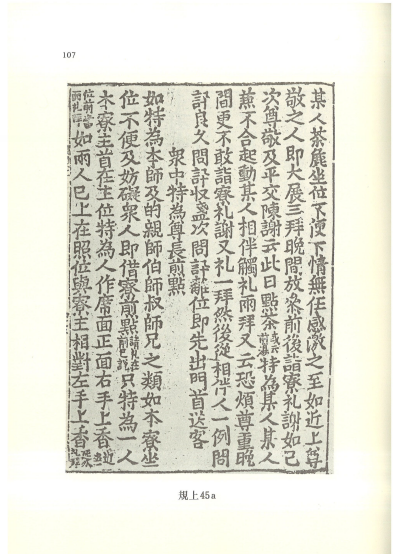 107
某人茶麁坐位不便下情無任感激之至如近上尊
敬之人即大展三拜晚間放參前後詣寮禮謝如已
次尊敬及平交陳謝云此日點茶或云煎湯特為某人某人
煎不合起動某人相伴觸礼兩拜又云煩尊重晚
間更不敢詣寮礼謝又礼一拜然後從相伴人一例問
訊良久問訊收盞次問訊離位即先出門首送客
眾中特為尊長煎點
如特為本師及的親師伯師叔師兄之類如本寮坐
位不便及妨礙眾人即借寮煎點請見在前已說只特為一人
本寮主首在主位特為人作席面正面右手上香近
位前礼請如兩人已上在照位與寮主相對左手上香
規上45a